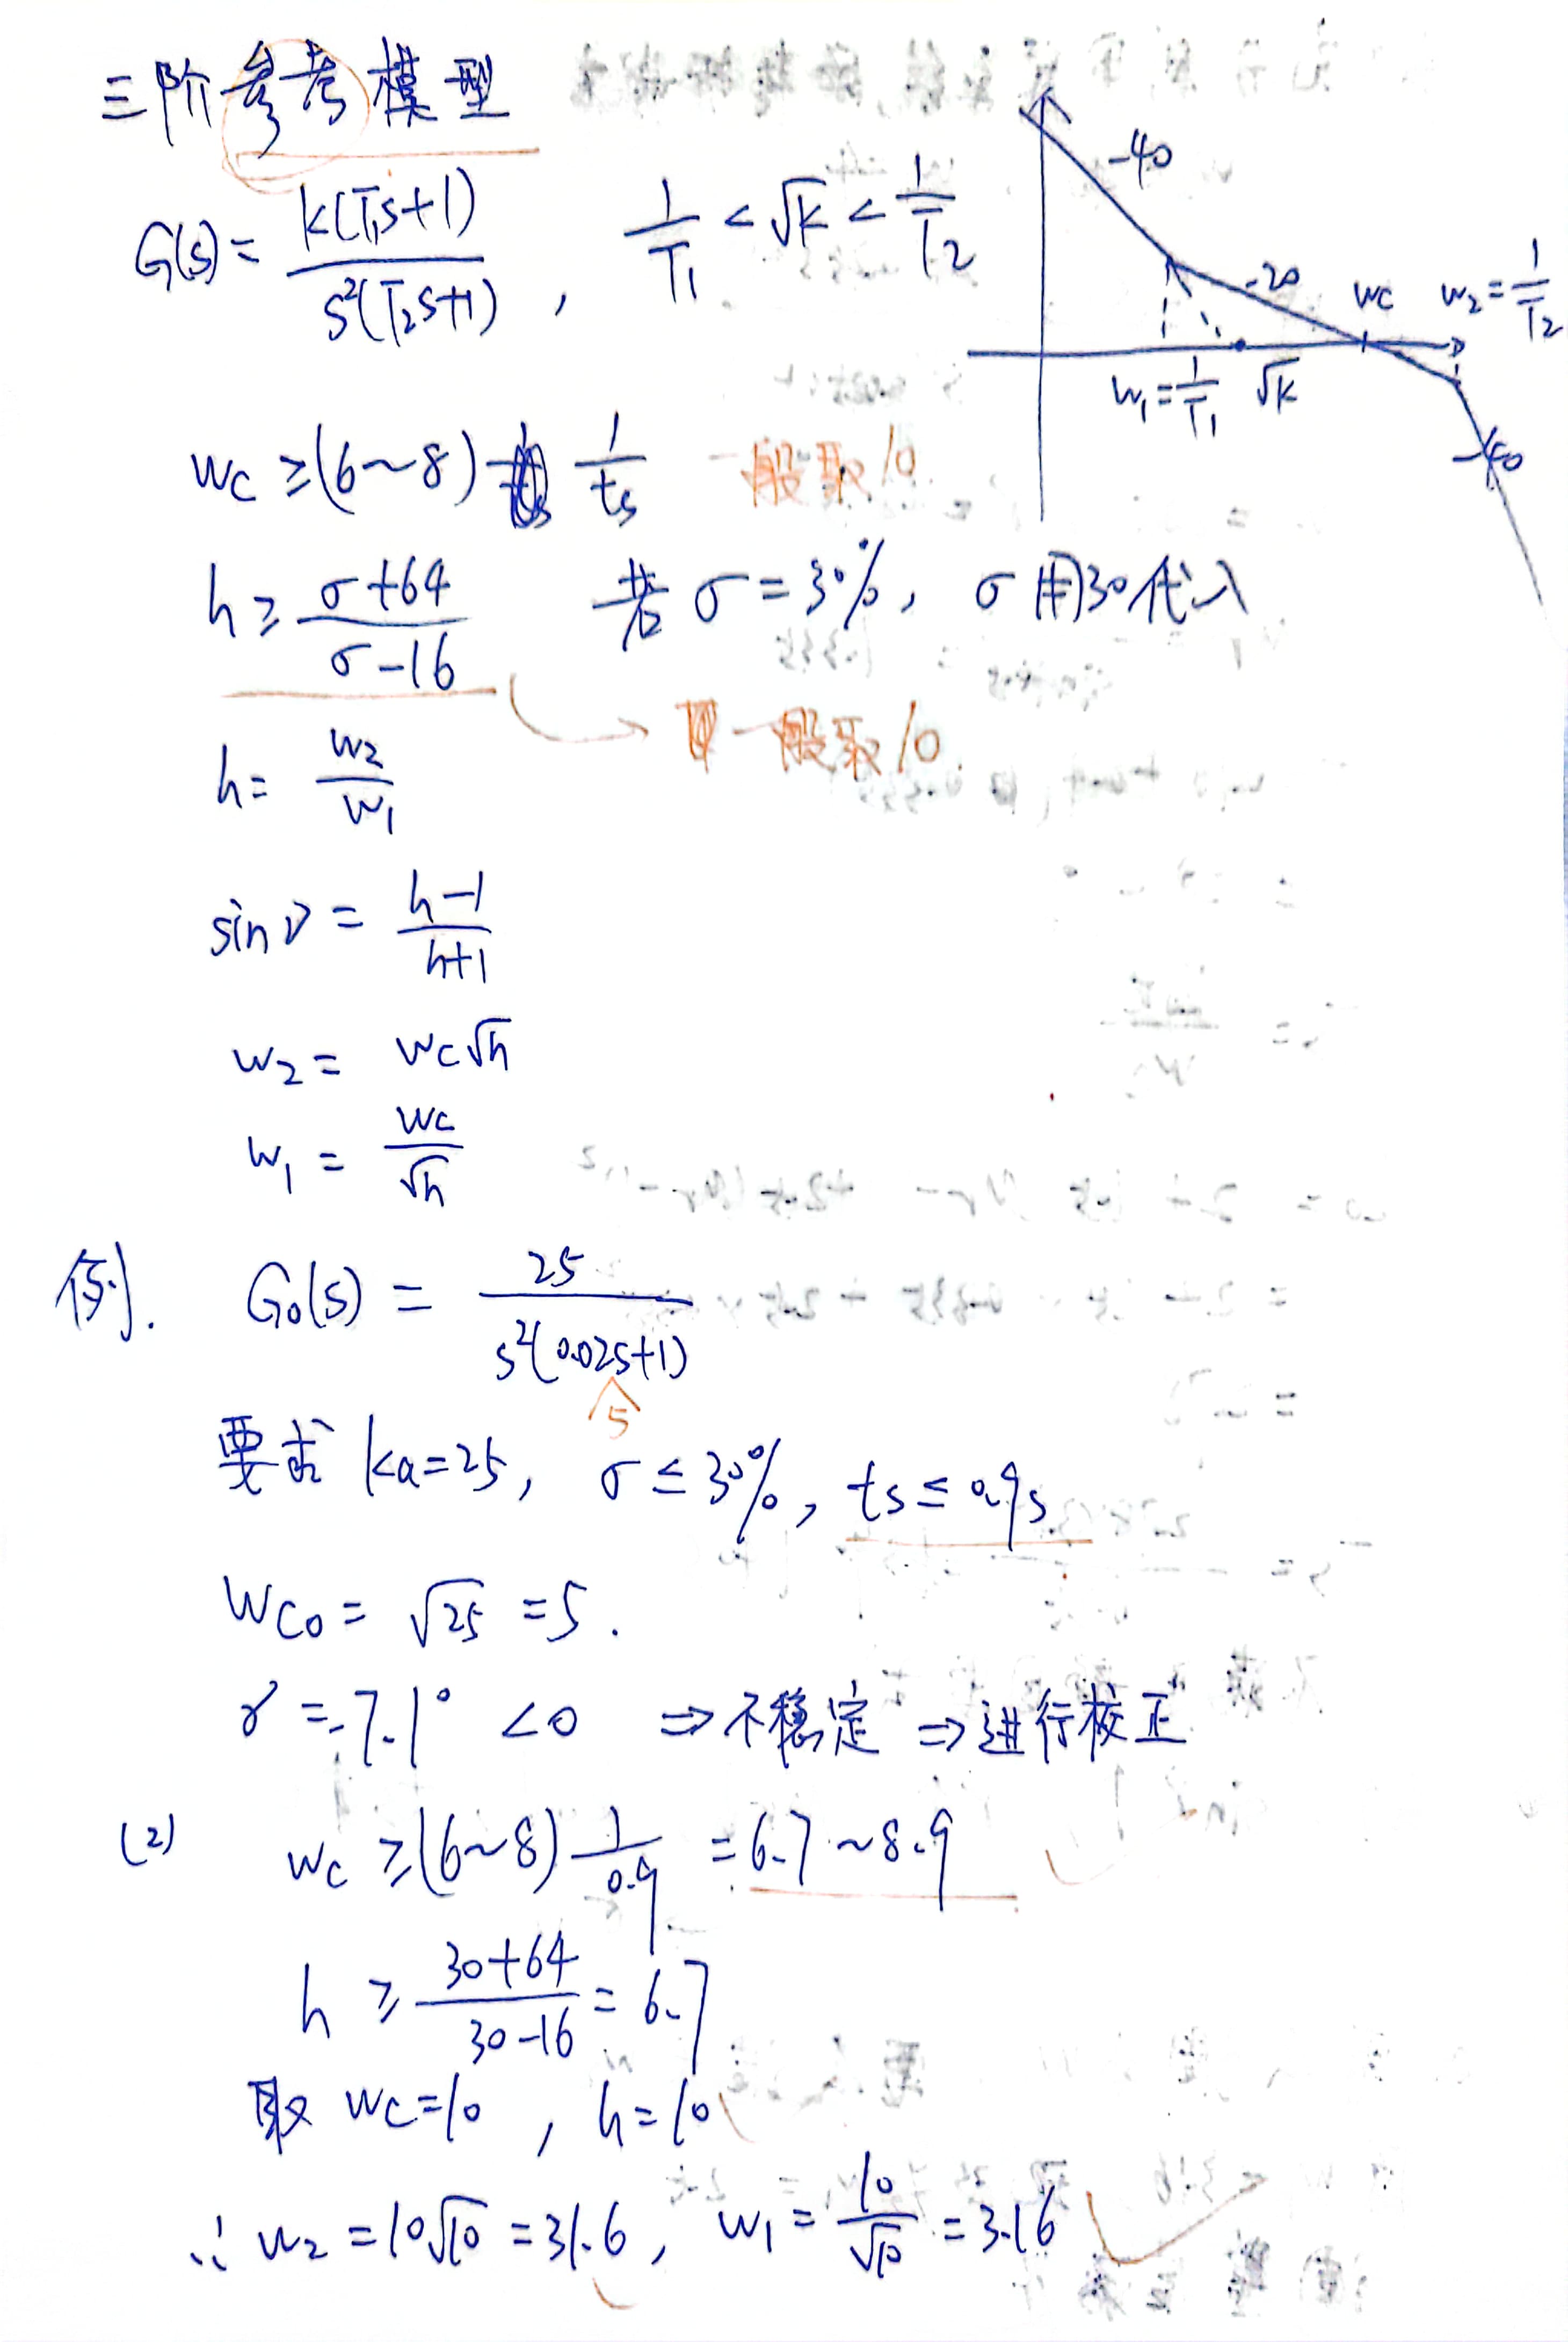 三阶参考模型
G(s) = k(T₁s+1) / s²(T₂s+1) , 1/T₁ < √k < 1/T₂
-40
-20
wc w₂ = 1/T₂
w₁ = 1/T₁ √k
-40
wc ≥ (6~8) 1/ts 一般取10
h ≥ (σ+64)/(σ-16) 若 σ = 30%, σ用30代入
一般取10
h = w₂/w₁
sin γ = (h-1)/(h+1)
w₂ = wc√h
w₁ = wc/√h
例. G₀(s) = 25 / s²(0.02s+1)
5
要求 ka=25, σ ≤ 30%, ts ≤ 0.9s
wc₀ = √25 = 5.
γ = -7.1° < 0 ⇒ 不稳定 ⇒ 进行校正
(2) wc ≥ (6~8) 1/0.9 = 6.7 ~ 8.9
h ≥ (30+64)/(30-16) = 6.7
取 wc=10, h=10
∴ w₂ = 10√10 = 31.6, w₁ = 10/√10 = 3.16